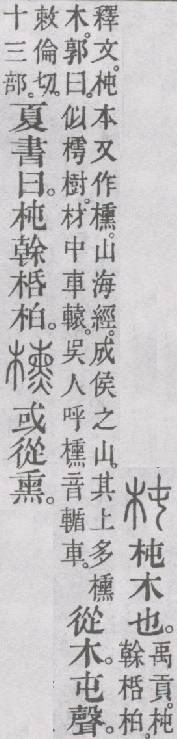 杶杶木也。
禹貢。杶
榦栝柏。
釋文。杶本又作櫄。山海經。成侯之山。其上多櫄
木。郭曰。似樗樹。材中車轅。吳人呼櫄音輴車。
從木。屯聲。
敕倫切。
十三部。
夏書曰。杶榦栝柏。櫄或從熏。